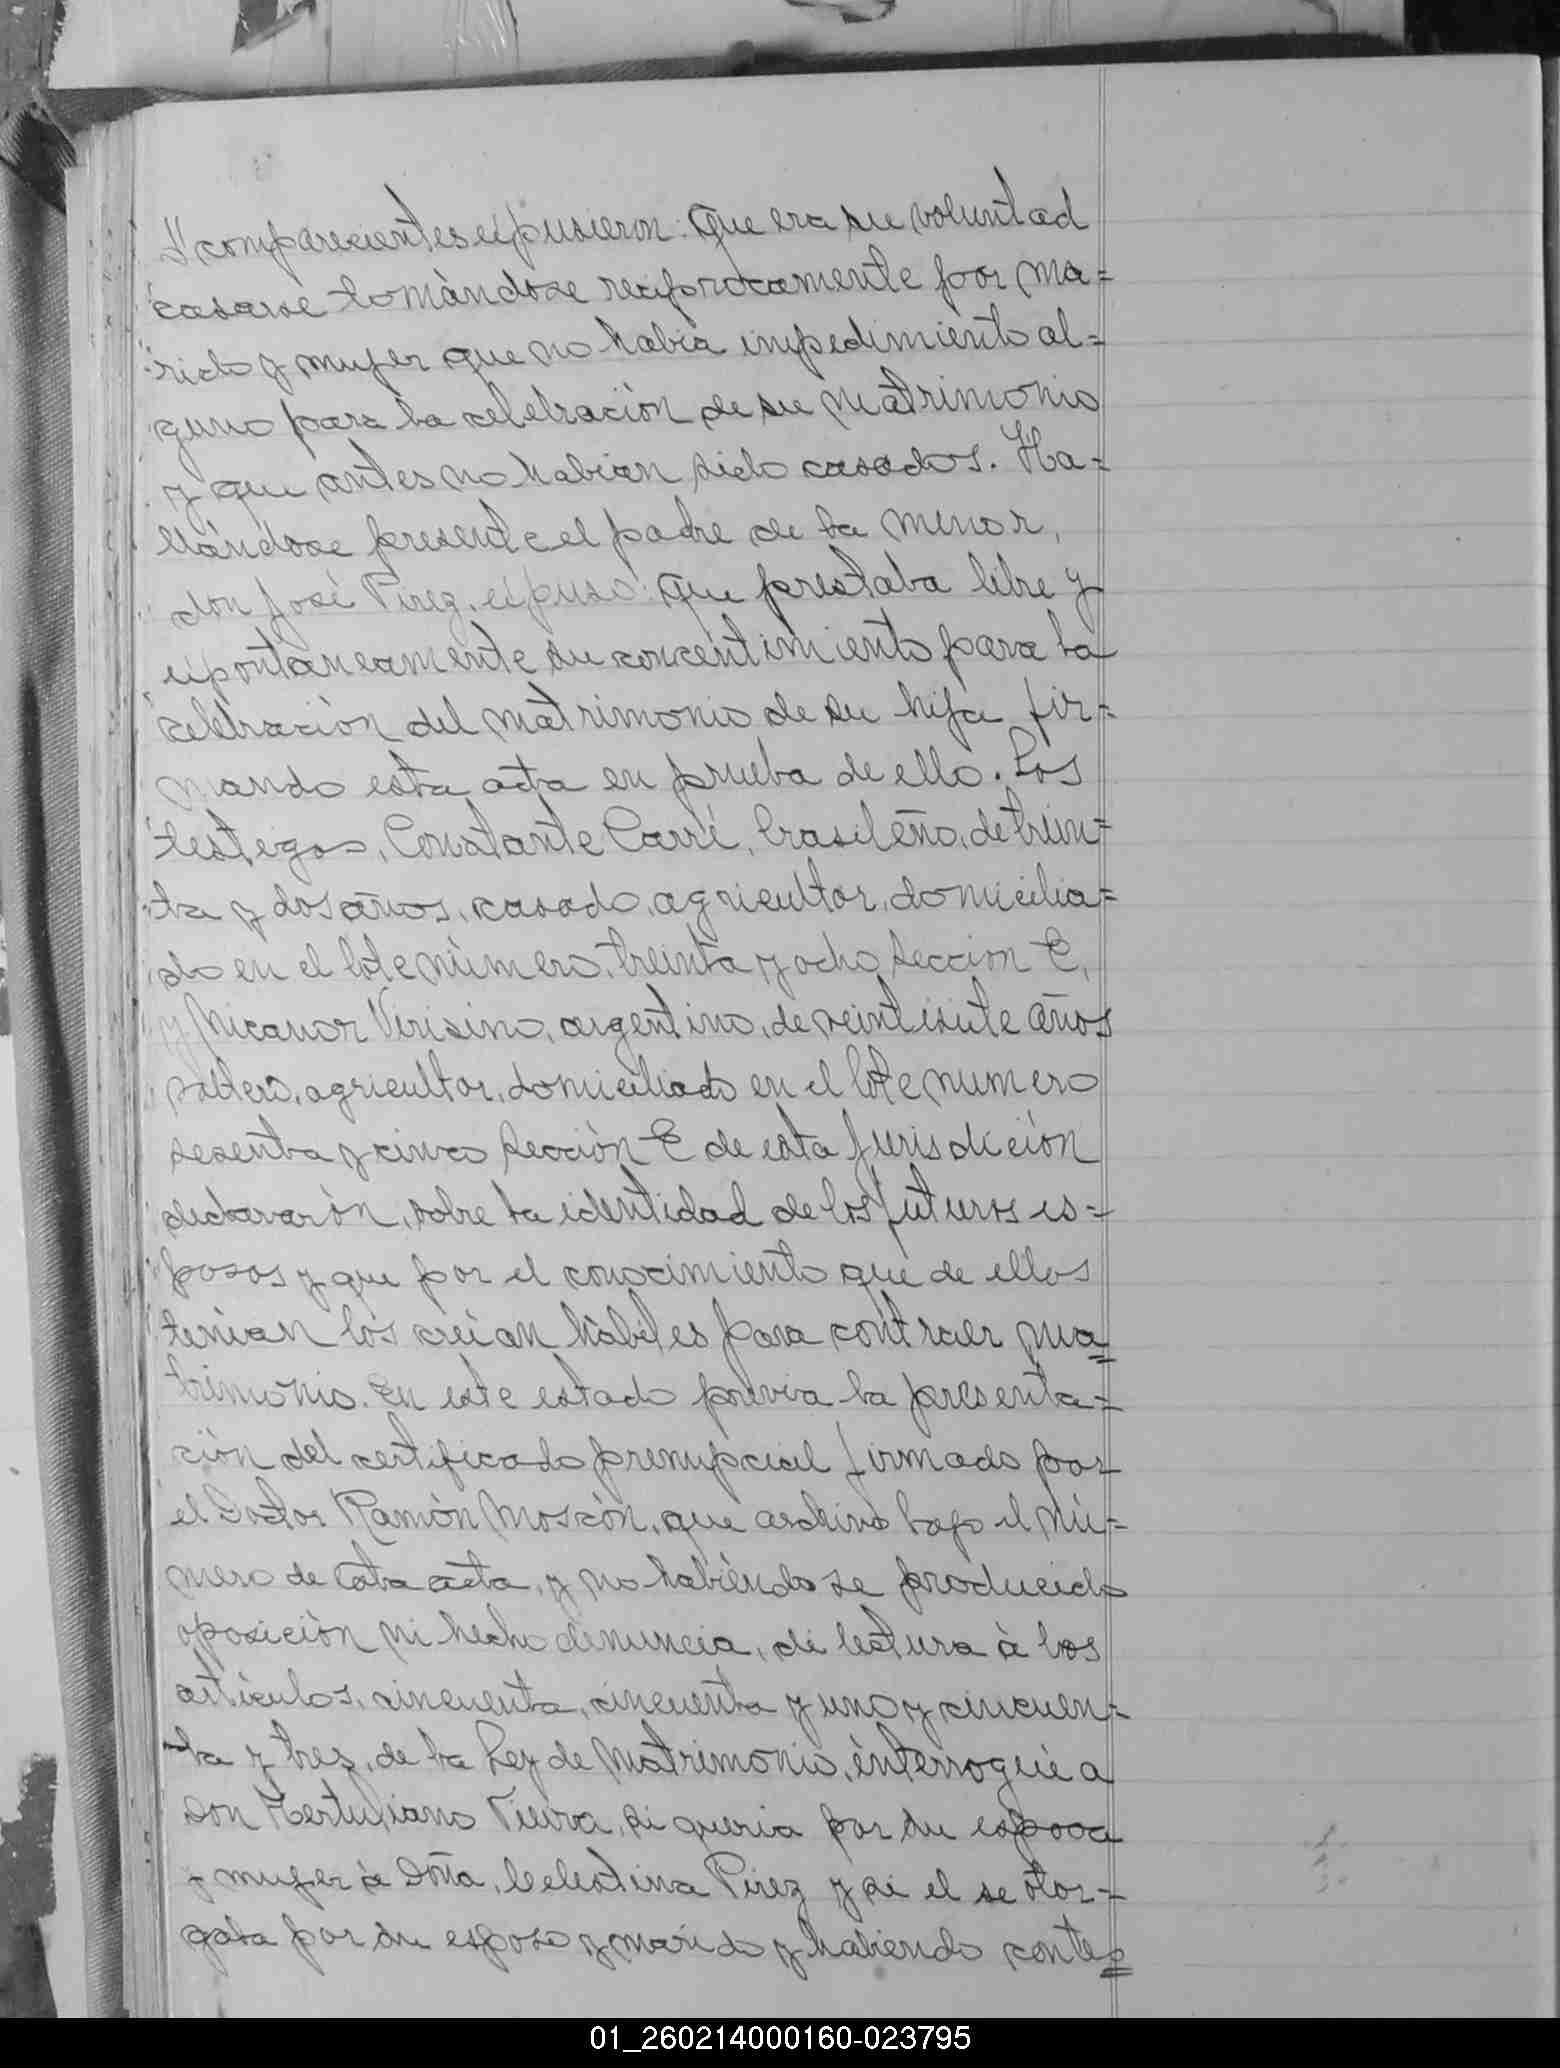 comparecientes expusieron: Que era su voluntad
casarse tomàndose reciprocamente por ma=
rido y mujer que no había impedimiento al=
guno para la celebración de su matrimonio
y que antes no habian sido casados. Ha=
llándose presente el padre de la menor,
don José Pirez, expuso: Que prestaba libre y
expontaneamente su concentimiento para la
celebración del matrimonio de su hija fir=
mando esta acta en prueba de ello. Los
testigos, Constante Carré, brasileño, de trein=
ta y dos años, casado, agricultor, domicilia=
do en el lote nùmero, treinta y ocho Seccion E,
y Nicanor Verisino, argentino, de veintisiete años
soltero, agricultor, domiciliado en el lote numero
sesenta y cinco Sección E de esta jurisdición
declararòn, sobre la identidad de los futuros es=
posos y que por el conocimiento que de ellos
tenian los creian hàbiles para contraer ma=
trimonio. En este estado previa la presenta=
ción del certificado prenupcial firmado por
el Doctor Ramòn Moscòn, que archivo bajo el nù=
mero de esta acta, y no habièndose producido
oposiciòn ni hecho denuncia, di lectura à los
artìculos, cincuenta, cincuenta y uno y cincuen=
ta y tres, de la Ley de Matrimonio, interroguè a
Don Tertuliano Vieira, si queria por su esposa
y mujer à Doña, Celestina Pirez y si el se otor=
gaba por su esposo y marido y habiendo contes=
01_260214000160-023795